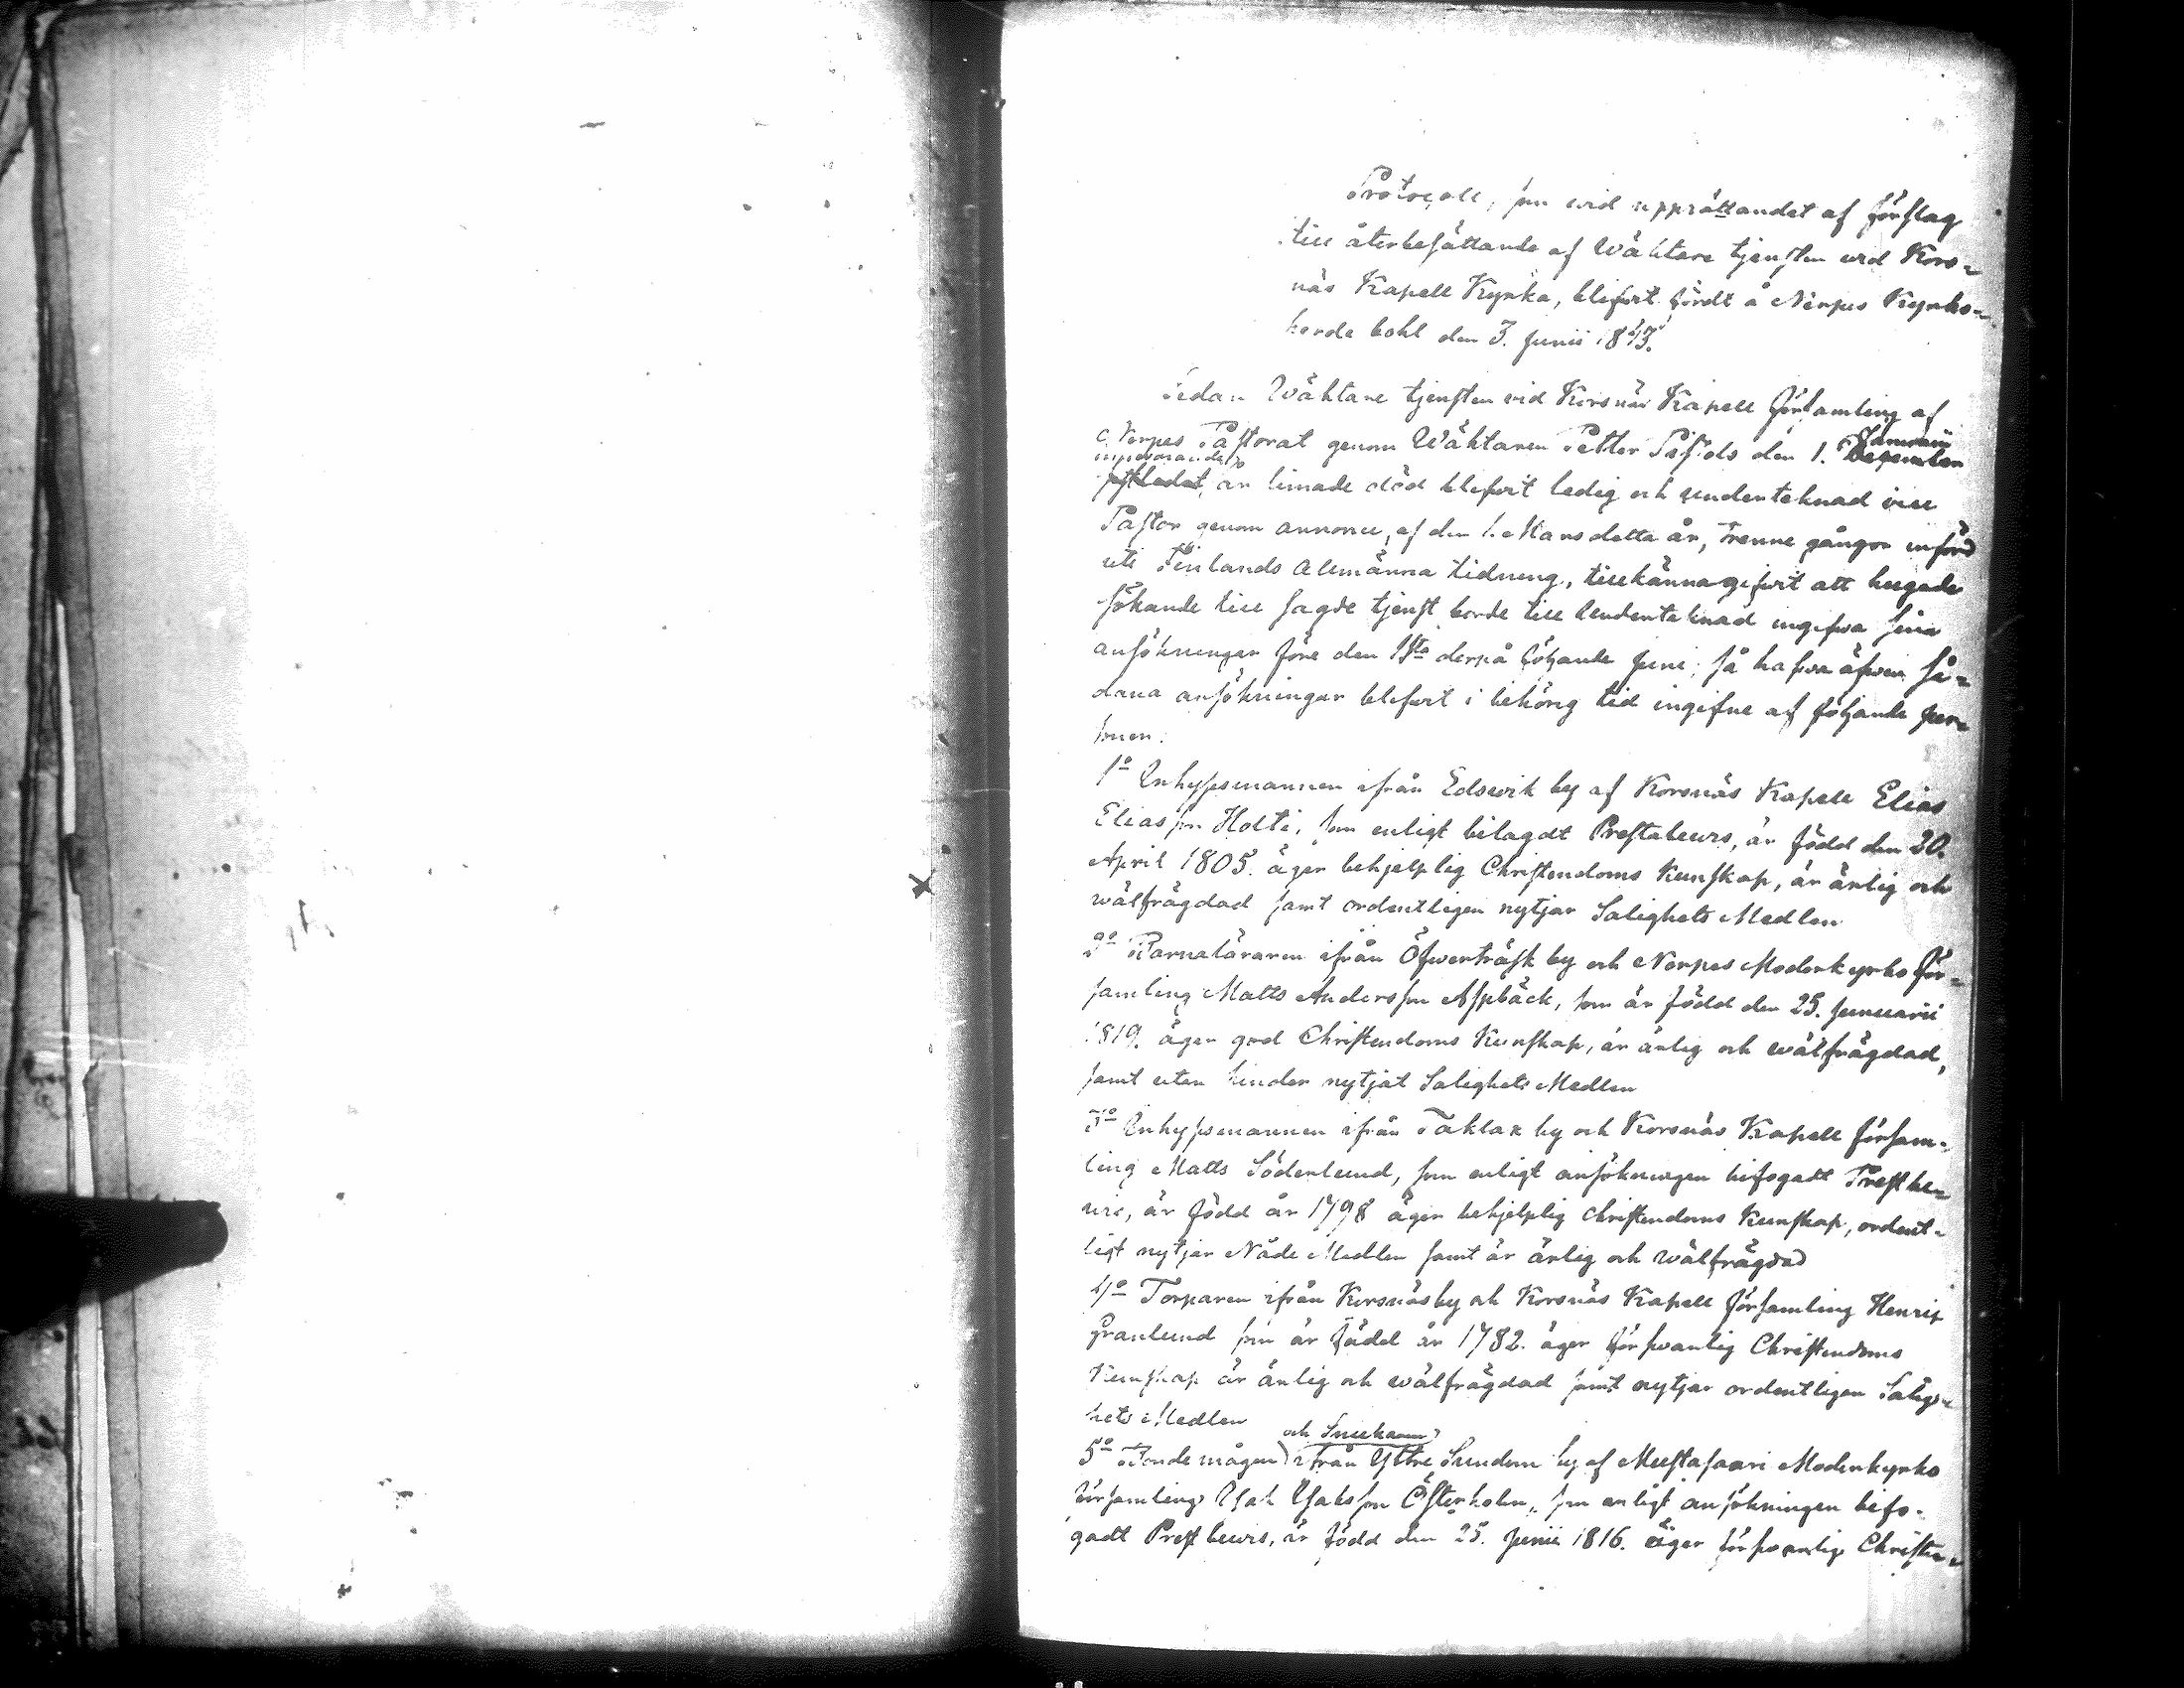 Protocoll, som wid upprättandet af förslag
till återbesättande af Wäktare tjensten wid Kors-
näs Kapell Kyrka, blifwit fördt å Nerpes Kyrko-
herde bohl den 3. Junii 1843.
Sedan Wäktare tjensten vid Korsnäs Kapell Församling af
Nerpes Pastorat genom Wäktaren Petter den 1. Januarii
innewarande år timade död blifwit ledig och underteknad vice
Pastor genom annonce, af den 1. Mars detta år, trenne gångor införd
uti Finlands Allmänna tidning, tillkännagifwit att hugade
sökande till sagde tjenst borde till undenteknad ingifwa sina
ansökningar före den 1sta derpå följande Juni; så hafwa äfwen så-
dana ansökningar blifwit i behörig tid ingifne af följande per-
soner:
1o Inhysesmannen ifrån Edswik by af Korsnäs Kapell Elias
Eliasson Holti, som enligt bilagdt Prestabewis, är född den 20.
April 1805. äger behjelplig Christendoms Kunskap, är ärlig och
wälfrägdad samt ordentligen nytjar Salighets Medlen
2o Barnaläraren ifrån Öfwerträsk by och Nerpes Moderkyrko För-
samling Matts Andersson Aspbäck, som är född den 25. Januarii
1819. äger god Christendoms Kunskap, är ärlig och wälfrägdad,
samt utan hinder nytjat Salighets Medlen
3o Inhysesmannen ifrån Taklax by och Korsnäs Kapell församl-
ling Matts Söderlund, som enligt ansökningen bifogadt Prestbe-
wis, är född år 1798 äger behjelplig christendoms Kunskap, ordent-
ligt nytjar Nåde Medlen samt är ärlig och wälfrägdad
4o Torparen ifrån Korsnäsby och Korsnäs Kapell församling Henric
Granlund som är född år 1782. äger förswarlig Christendoms
Kunskap är ärlig och wälfrägdad samt nytjar ordentligen Salig-
hets Medlen
och Snickaren
5o Bondemågen ifrån Yttre Sundom by af Mustasaari Moderkyrko
församling Isak Isaksson Österholm, som enligt ansökningen bifo-
gadt Prest bewis, är född den 25. Junii 1816. äger förswarlig Christen-